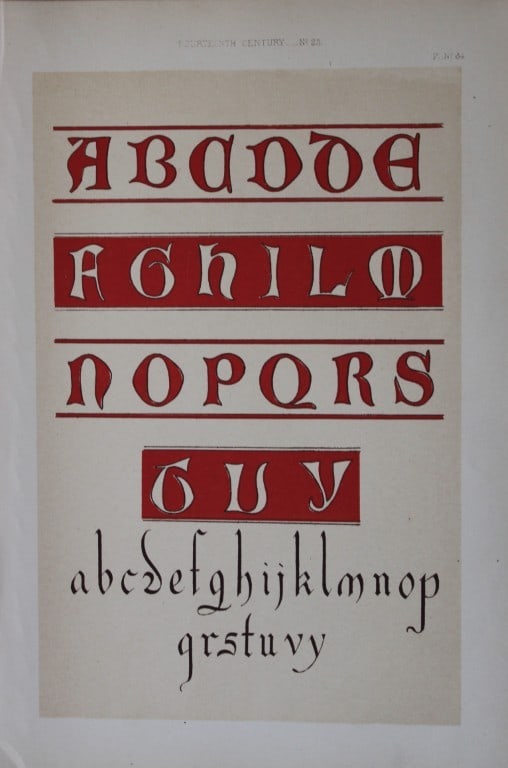 FOURTEENTH CENTURY. Nº 23.
P. Nº 64
ABCDDE
FGHILM
NOPQRS
TUY
abcdefghijklmnop
qrstuvy